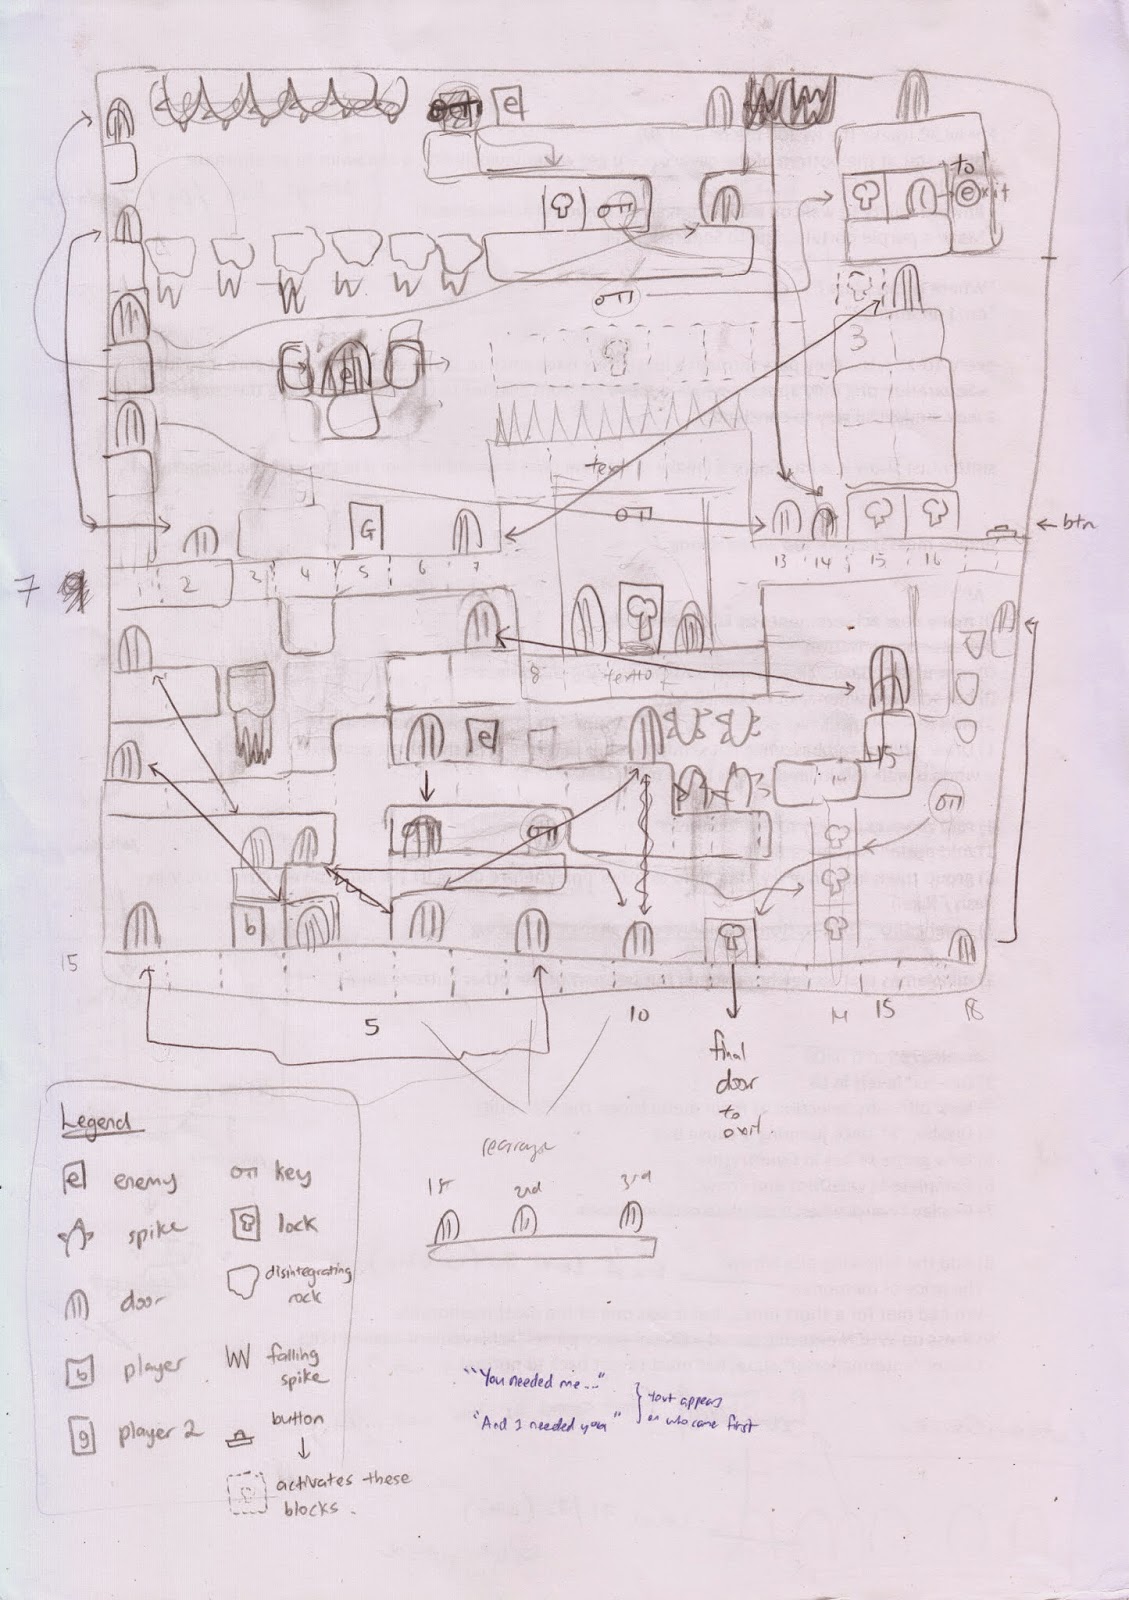 e
to
e xit
3
e
text 1
G
← btn
13 14 15 16
7
2 3 4 5 6 7
8
e
15
14
b
15
5
10
14 15 18
final
door
to
exit
Legend
e enemy
key
spike
lock
door
disintegrating
rock
b player
falling
spike
g player 2
button
activates these
blocks.
1st 2nd 3rd
"You needed me..."
"And I needed you"
text appears
on who came first